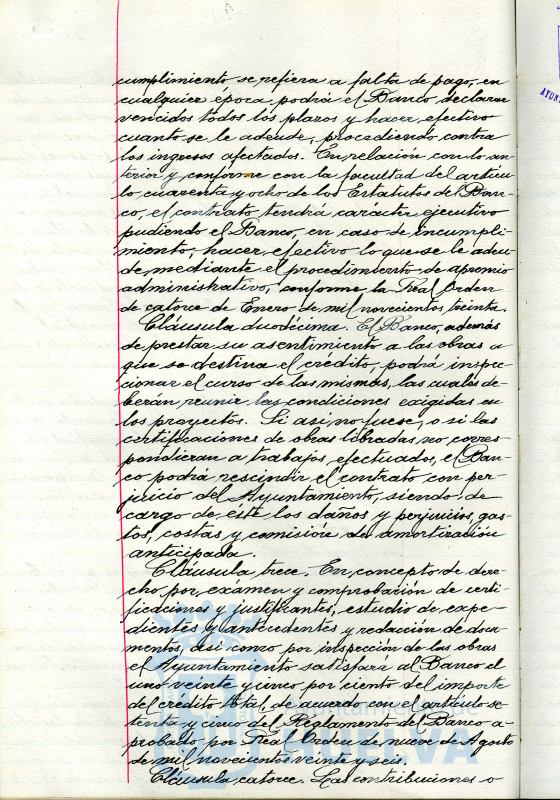 cumplimiento se refiera a falta de pago, en
cualquier época podrá el Banco declarar
vencidos todos los plazos y hacer efectivo
cuanto se le adeude, procediendo contra
los ingresos afectados. En relación con lo an-
terior y conforme con la facultad del artícu-
lo cuarenta y ocho de los Estatutos del Ban-
co, el contrato tendrá carácter ejecutivo
pudiendo el Banco, en caso de incumpli-
miento, hacer efectivo lo que se le adeu-
de, mediante el procedimiento de apremio
administrativo, conforme la Real Orden
de catorce de Enero de mil novecientos treinta.
Cláusula duodécima. El Banco, además
de prestar su asentimiento a las obras a
que se destina el crédito, podrá inspec-
cionar el curso de las mismas, las cuales de-
berán reunir las condiciones exigidas en
los proyectos. Si asi no fuese, o si las
certificaciones de obras libradas no corres-
pondieran a trabajos efectuados, el Ban-
co podrá rescindir el contrato con per-
juicio del Ayuntamiento, siendo de
cargo de éste los daños y perjuicios, gas-
tos, costas y comisión de amortización
anticipada.
Cláusula trece. En concepto de dere-
cho por examen y comprobación de certi-
ficaciones y justificantes, estudio de expe-
dientes y antecedentes y redacción de docu-
mentos, asi como por inspección de las obras
el Ayuntamiento satisfará al Banco el
uno veinte y cinco por ciento del importe
del crédito total, de acuerdo con el artículo se-
tenta y cinco del Reglamento del Banco a-
probado por Real Orden de nueve de Agosto
de mil novecientos veinte y seis.
Cláusula catorce. Las contribuciones o
HUELVA